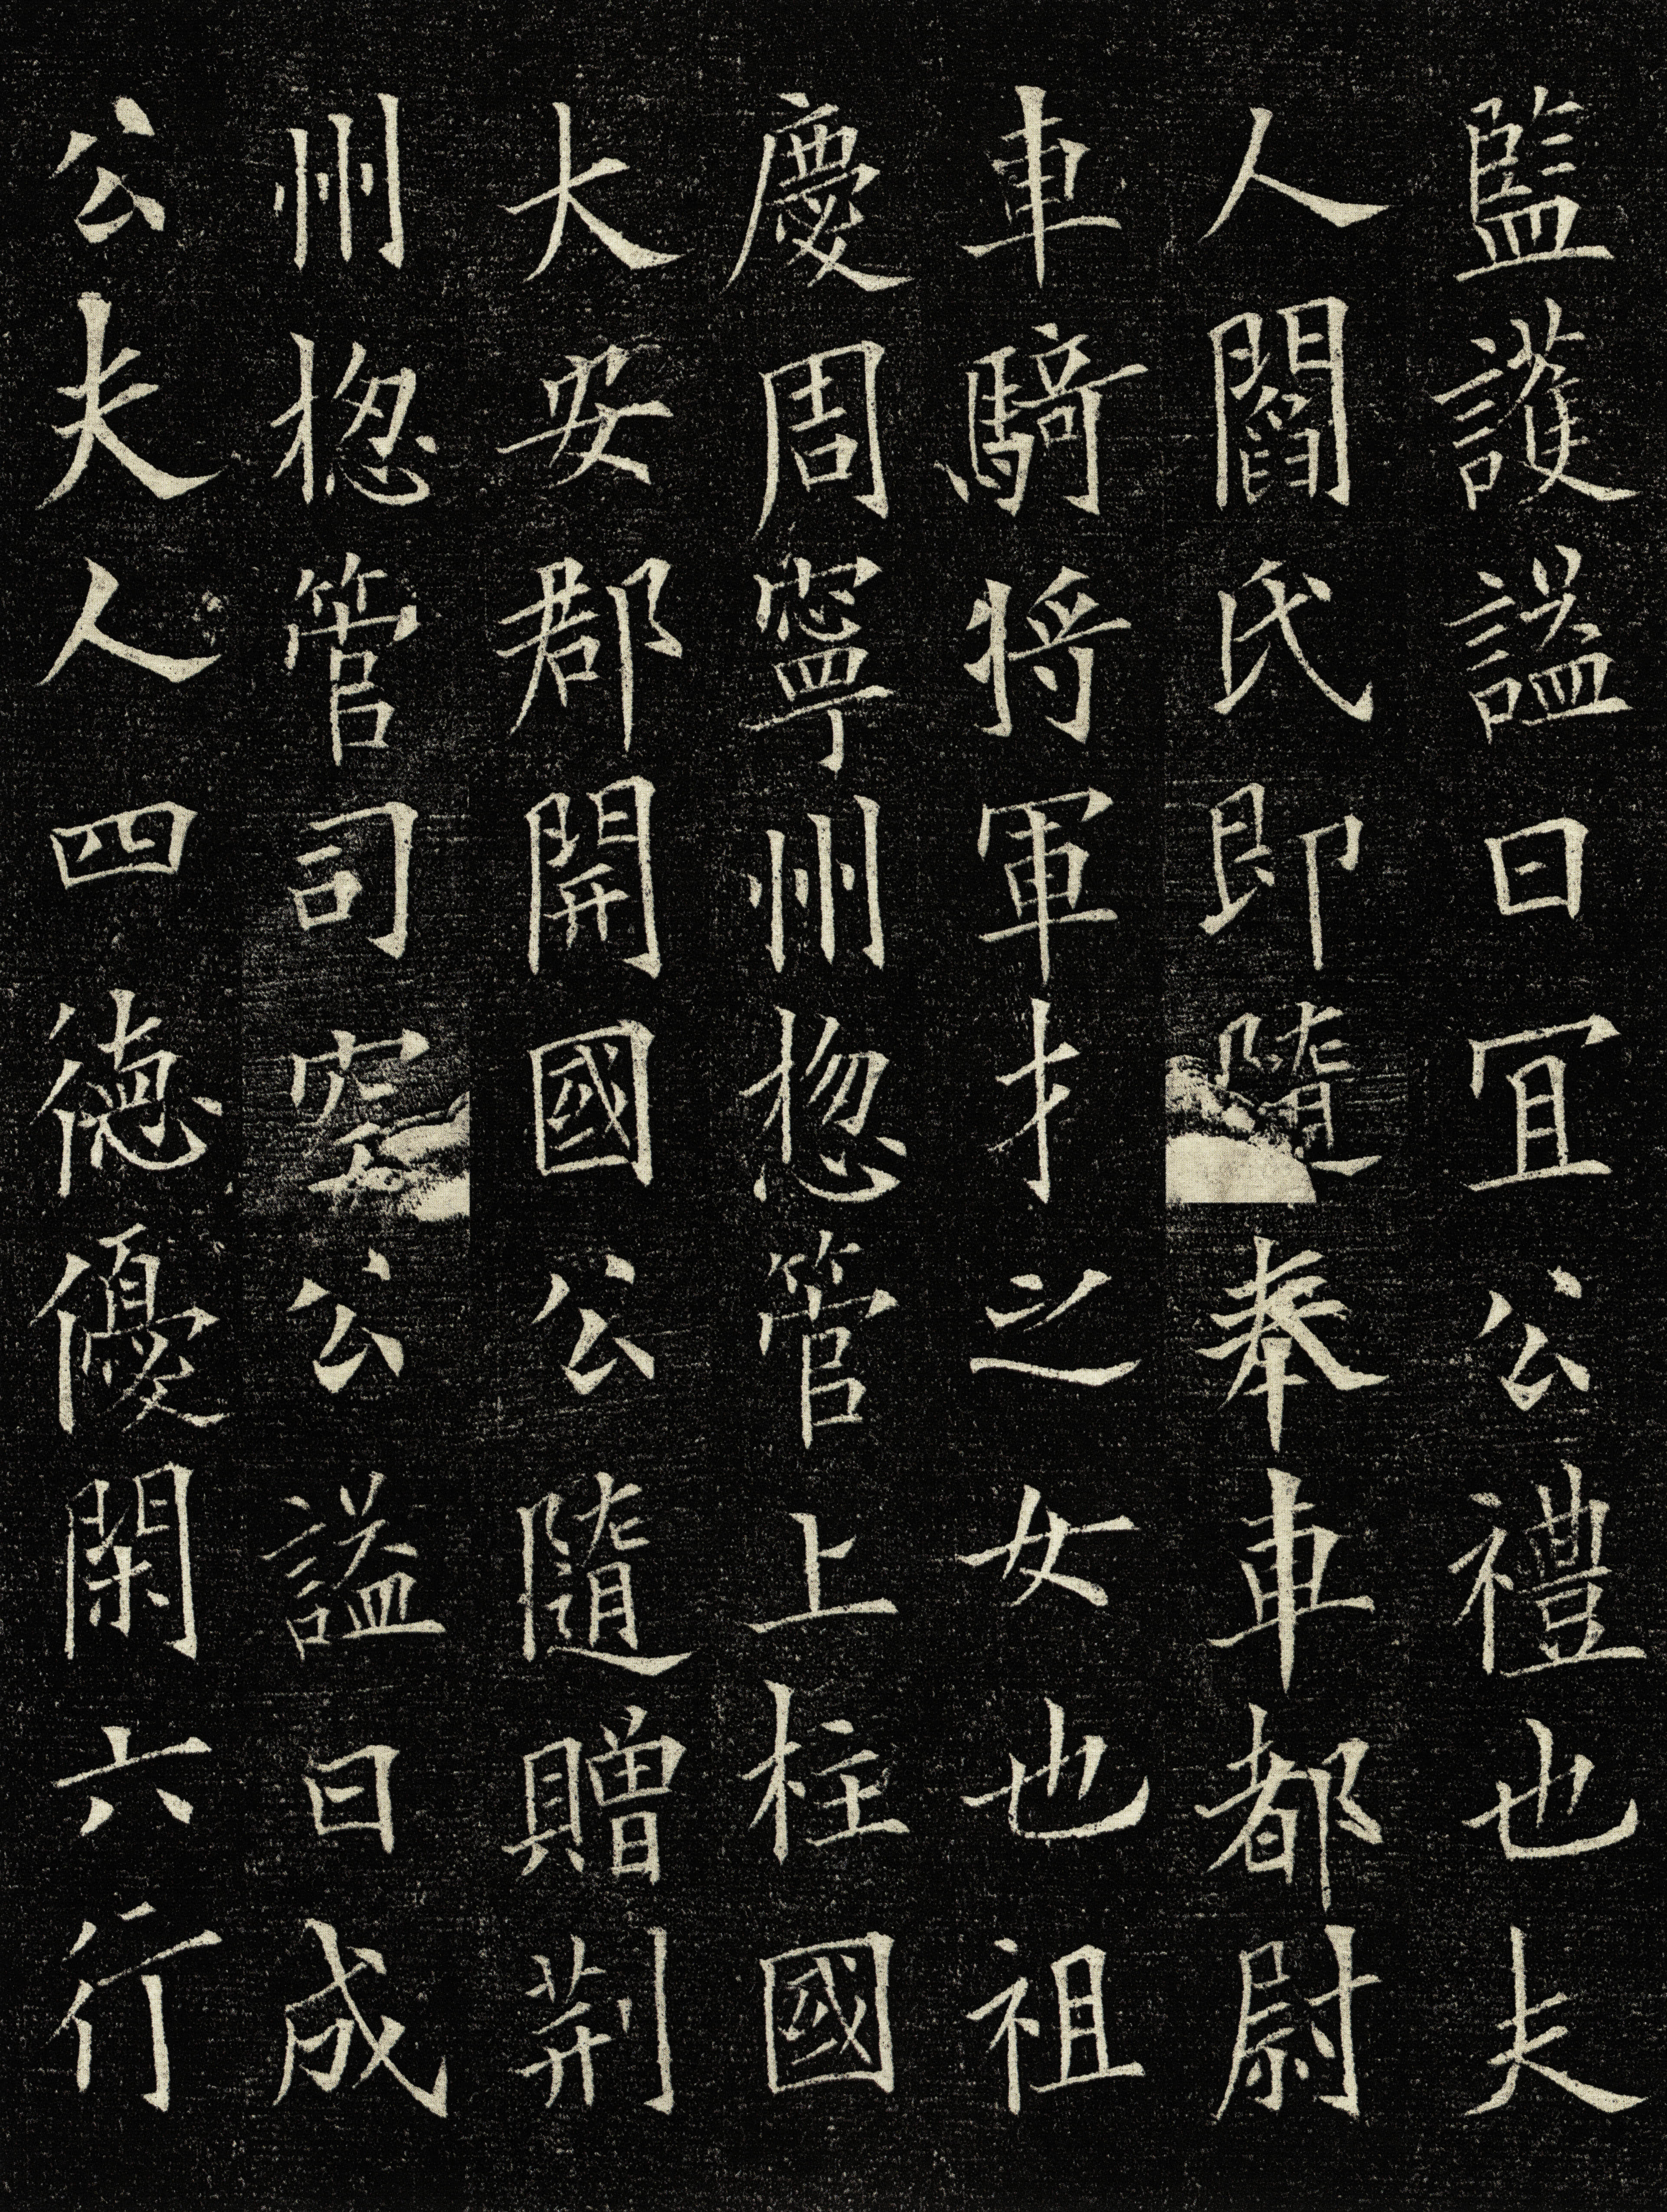 監護謚曰宜公禮也夫
人閻氏即隨奉車都尉
車騎將軍才之女也祖
慶周寧州揔管上柱國
大安郡開國公隨贈荆
州揔管司空公謚曰成
公夫人四德優閑六行